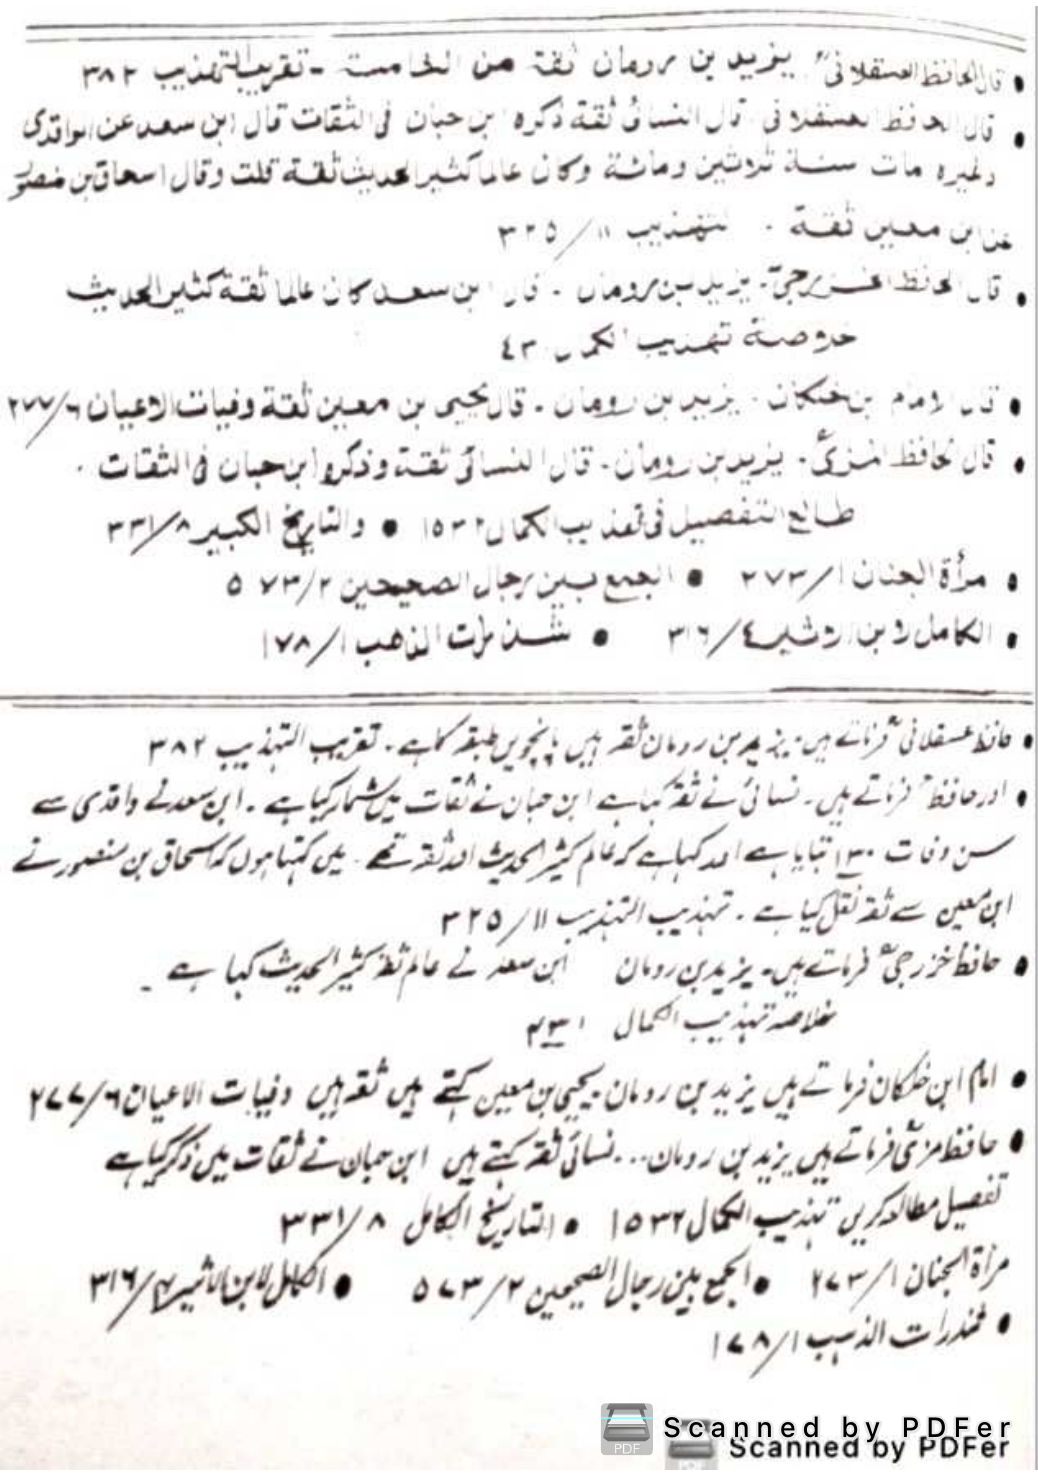 • قال الحافظ العسقلانیؒ یزید بن رومان ثقة من الخامسة - تقریب التهذیب ۳۸۲
• قال الحافظ العسقلانی قال النسائی ثقة ذکره ابن حبان فی الثقات قال ابن سعد عن الواقدی
وغیره مات سنة ثلاثین ومائة وکان عالما کثیر الحدیث ثقة قلت وقال اسحاق بن منصور
عن ابن معین ثقة - تهذیب ۱۱/۳۲۵
• قال الحافظ الخزرجیؒ - یزید بن رومان - قال ابن سعد کان عالما ثقة کثیر الحدیث
خلاصة تهذیب الکمال
• قال الامام بن خلکان - یزید بن رومان - قال یحیی بن معین ثقة وفیات الاعیان ۶/۲۷۷
• قال الحافظ المزیؒ - یزید بن رومان - قال النسائی ثقة وذکره ابن حبان فی الثقات -
طالع التفصیل فی تهذیب الکمال ۱۵۳۲ • والتاریخ الکبیر ۸/۳۳۱
• مرأة الجنان ۱/۲۷۳ • الجمع بین رجال الصحیحین ۲/۵۷۳
• الکامل لابن الاثیر ٤/۳۱۶ • شذرات الذهب ۱/۱۷۸
• حافظ عسقلانیؒ فرماتے ہیں - یزید بن رومان ثقہ ہیں پانچویں طبقہ کا ہے - تقریب التہذیب ۳۸۲
• اور حافظؒ فرماتے ہیں - نسائی نے ثقہ کہا ہے ابن حبان نے ثقات میں شمار کیا ہے - ابن سعد نے واقدی سے
سن وفات ۱۳۰ بتایا ہے اور کہا ہے کہ عالم کثیر الحدیث اور ثقہ تھے - میں کہتا ہوں کہ اسحاق بن منصور نے
ابن معین سے ثقہ نقل کیا ہے - تہذیب التہذیب ۱۱/۳۲۵
• حافظ خزرجیؒ فرماتے ہیں - یزید بن رومان ابن سعد نے عالم ثقہ کثیر الحدیث کہا ہے -
خلاصہ تہذیب الکمال
• امام ابن خلکان فرماتے ہیں یزید بن رومان - یحیی بن معین کہتے ہیں ثقہ ہیں وفیات الاعیان ۶/۲۷۷
• حافظ مزیؒ فرماتے ہیں یزید بن رومان... نسائی ثقہ کہتے ہیں ابن حبان نے ثقات میں ذکر کیا ہے
تفصیل مطالعہ کریں تہذیب الکمال ۱۵۳۲ • التاریخ الکامل ۸/۳۳۱
مرأة الجنان ۱/۲۷۳ • الجمع بین رجال الصحیحین ۲/۵۷۳ • الکامل لابن الاثیر ۴/۳۱۶
• شذرات الذہب ۱/۱۷۸
PDF Scanned by PDFer
Scanned by PDFer